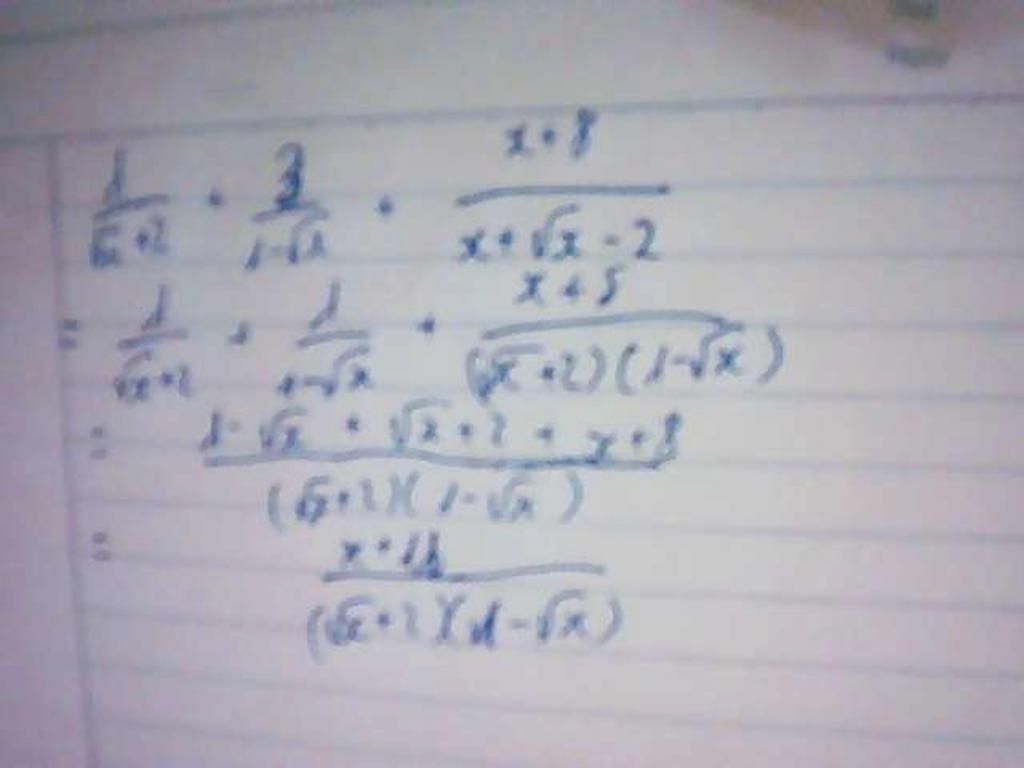 1/(√x+2) + 3/(1-√x) + (x+8)/(x+√x-2)
= 1/(√x+2) + 1/(1-√x) + (x+5)/((√x+2)(1-√x))
= (1-√x + √x+2 + x+8)/((√x+2)(1-√x))
= (x+11)/((√x+2)(1-√x))